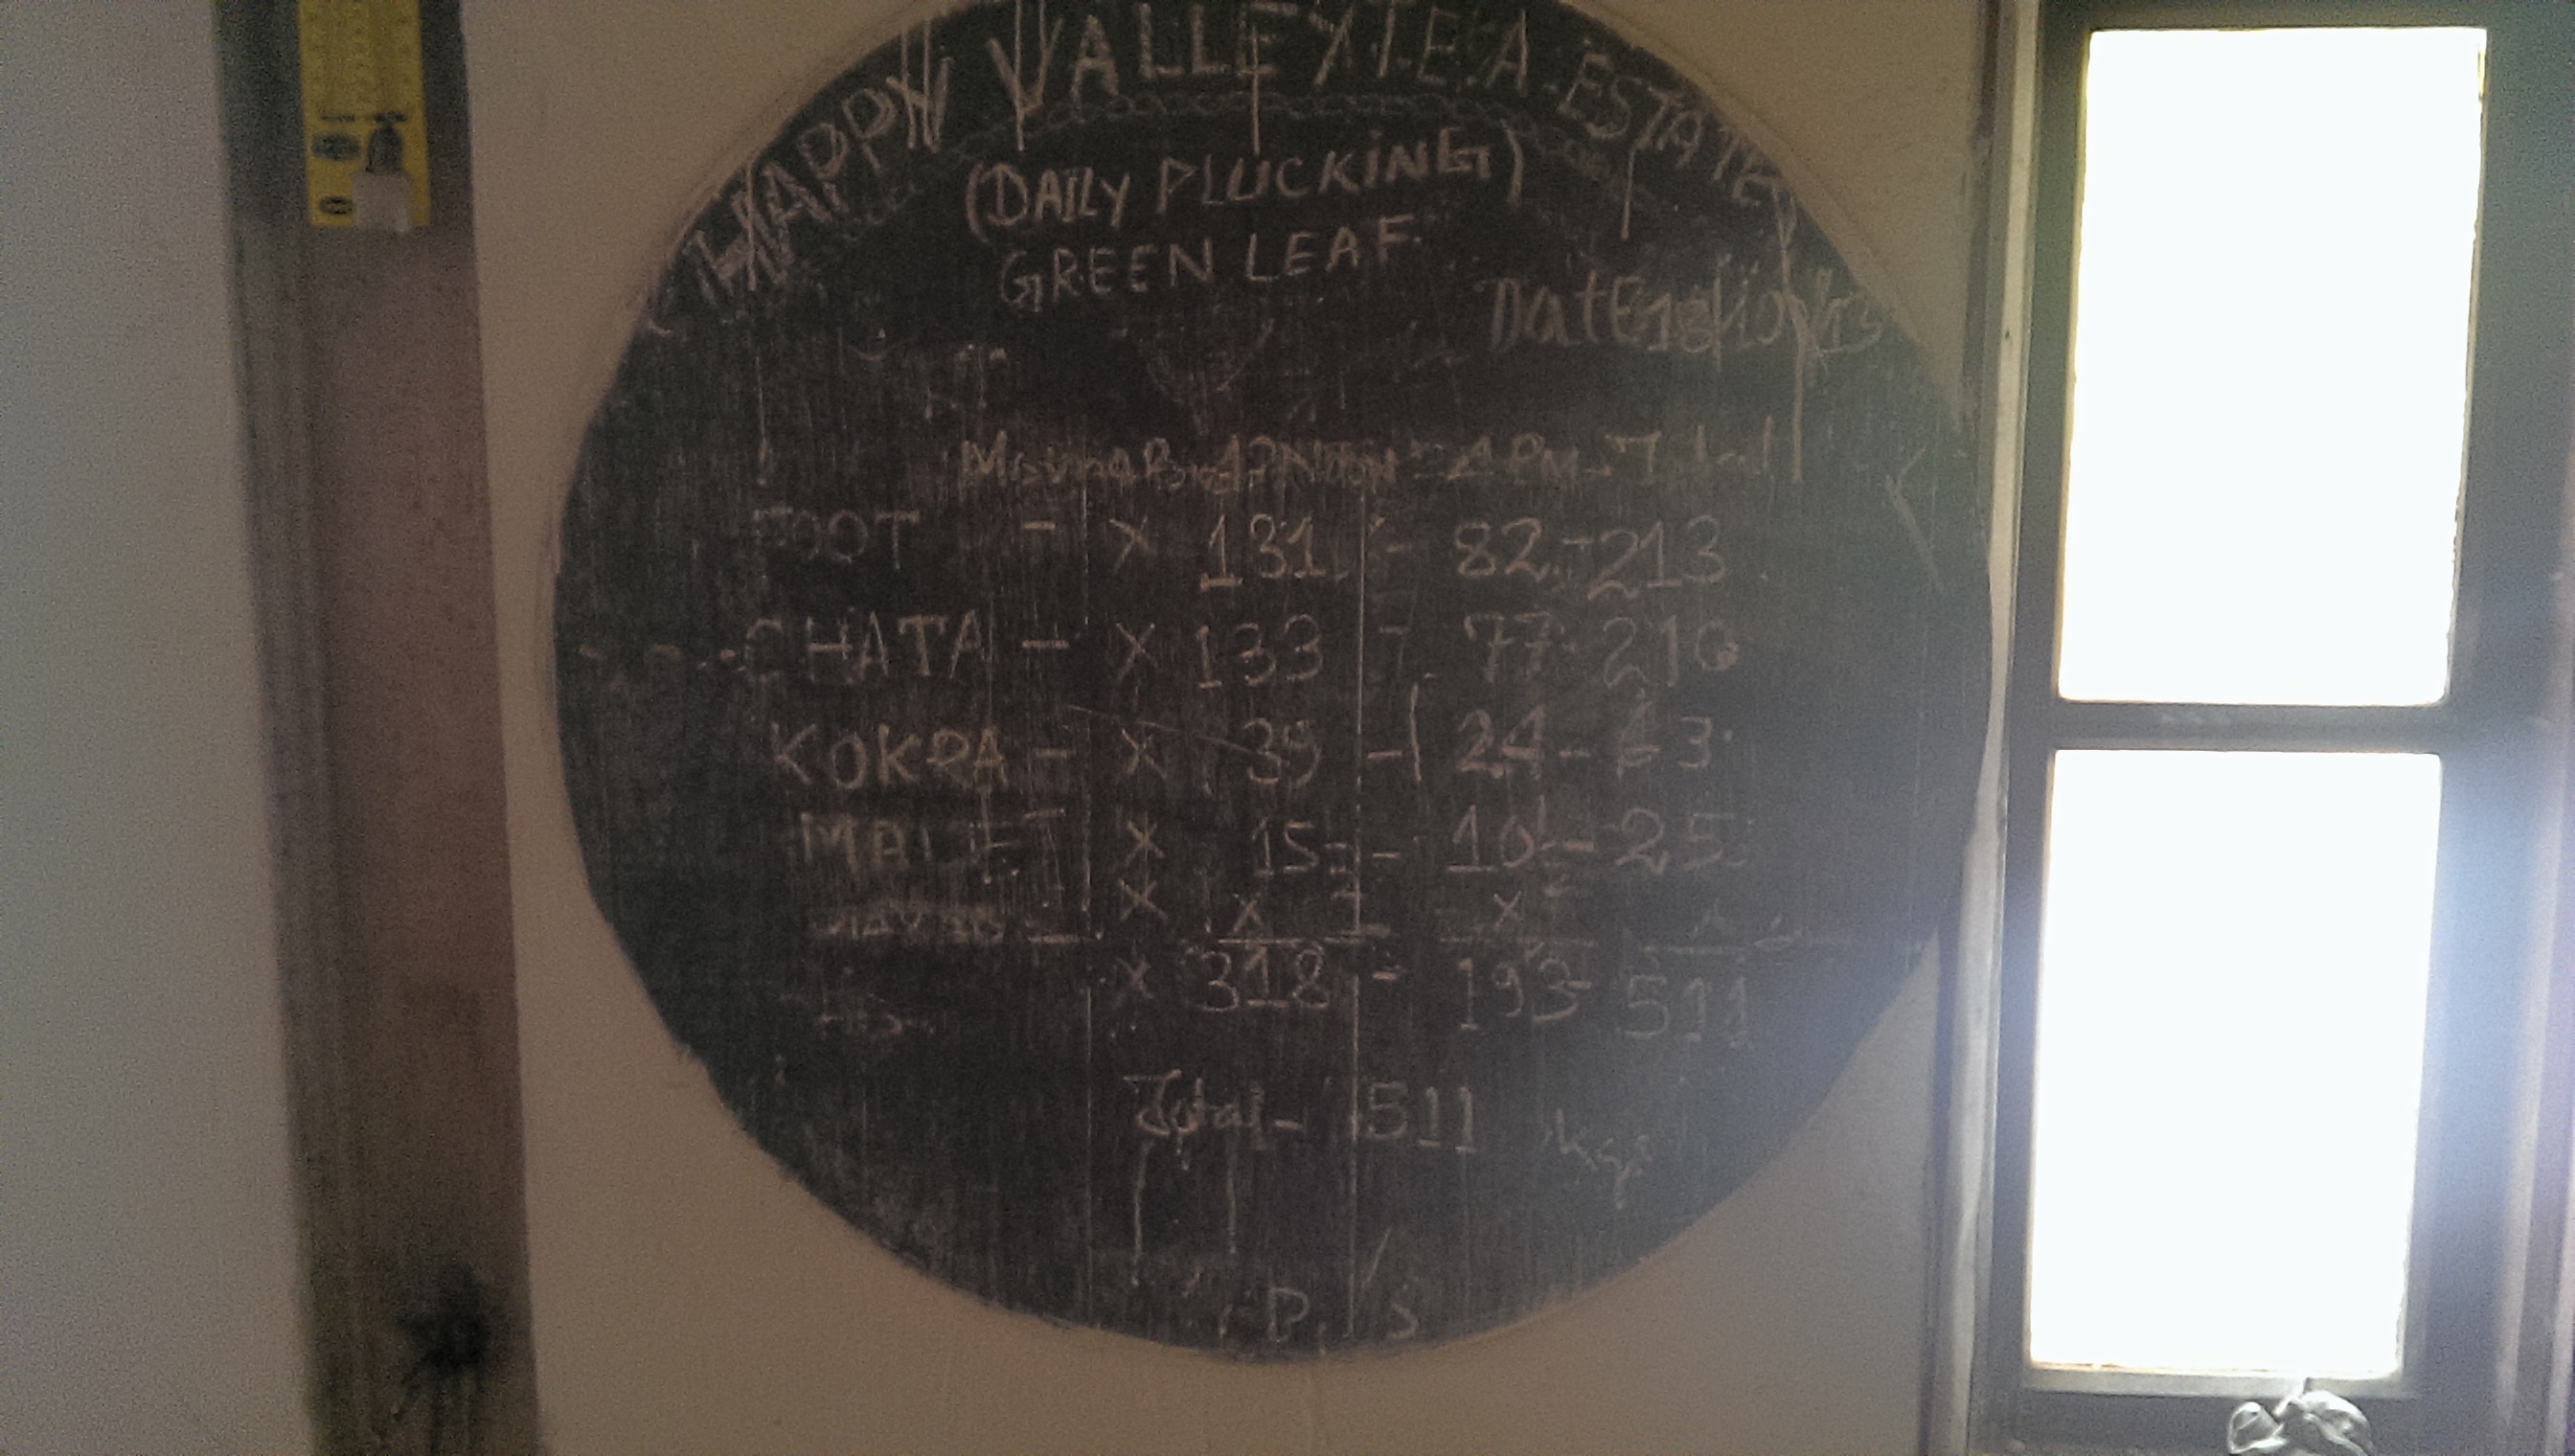 HAPPY VALLEY T.E.A. ESTATE
(DAILY PLUCKING)
GREEN LEAF
DatE 18/10/13
12 NOON 4 PM Total
FOOT - X 131 - 82 - 213
CHATA - X 133 - 77 - 210
KOKRA - X 39 - 24 - 63
X 15 - 10 - 25
X X - X X
X 318 - 193 - 511
Total - 511 kgs